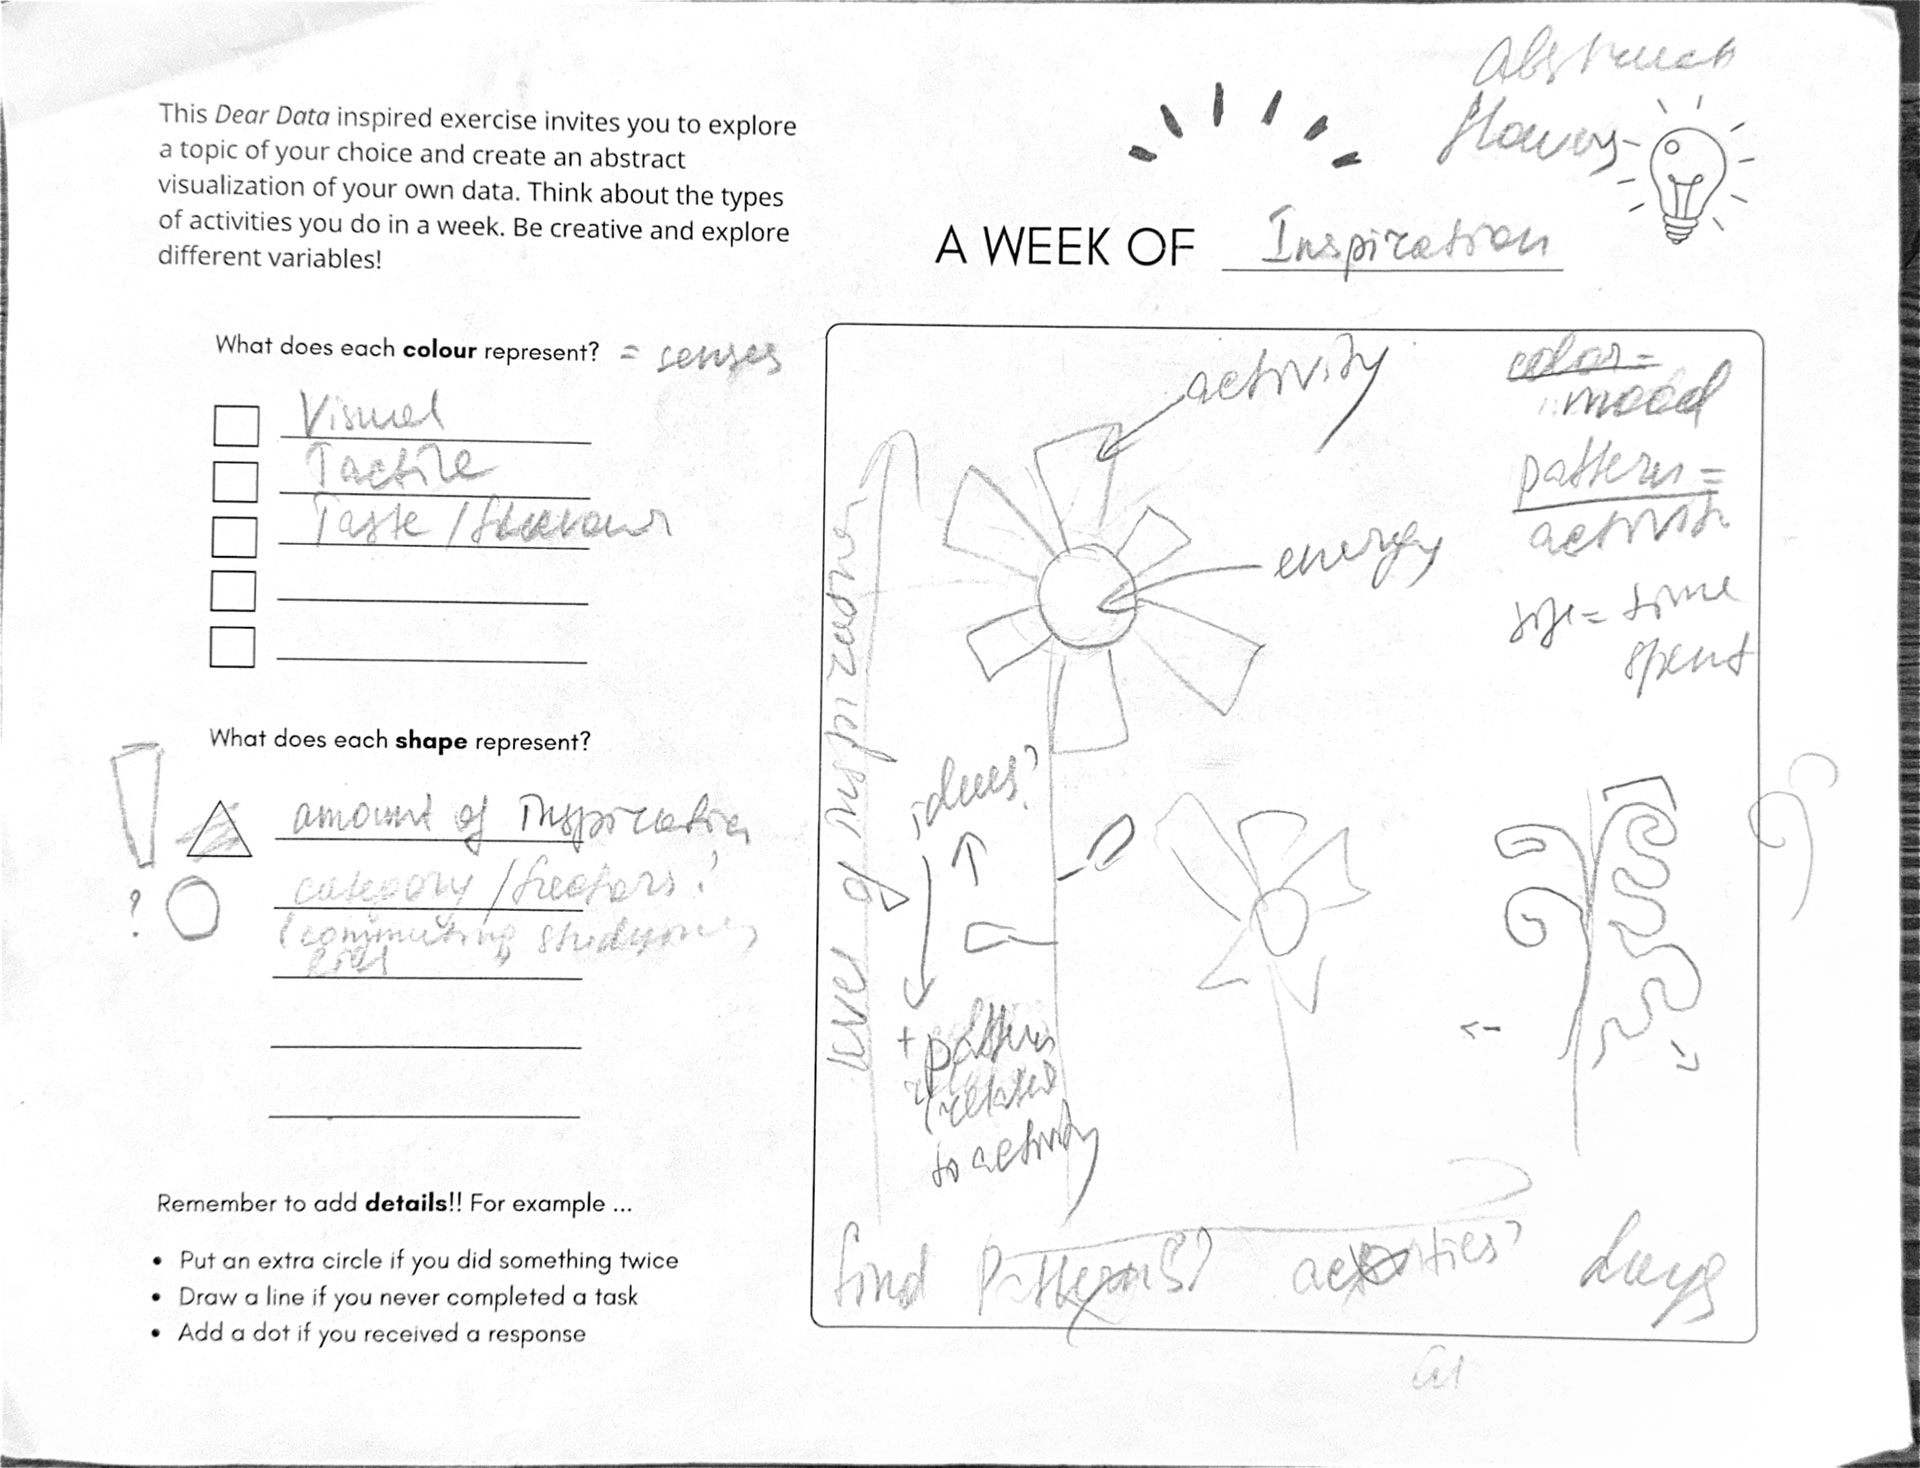 This Dear Data inspired exercise invites you to explore
a topic of your choice and create an abstract
visualization of your own data. Think about the types
of activities you do in a week. Be creative and explore
different variables!
Abstract
flowers
A WEEK OF Inspiration
What does each colour represent? = senses
Visual
Tactile
Taste /
What does each shape represent?
!
amount of Inspiration
? category / factors?
(commuting
kids
Remember to add details!! For example ...
• Put an extra circle if you did something twice
• Draw a line if you never completed a task
• Add a dot if you received a response
activity
color =
mood
pattern =
activity
energy
size = time
spent
level of inspiration
ideas?
+ pattern
(related
to activity
find Patterns? activities? days